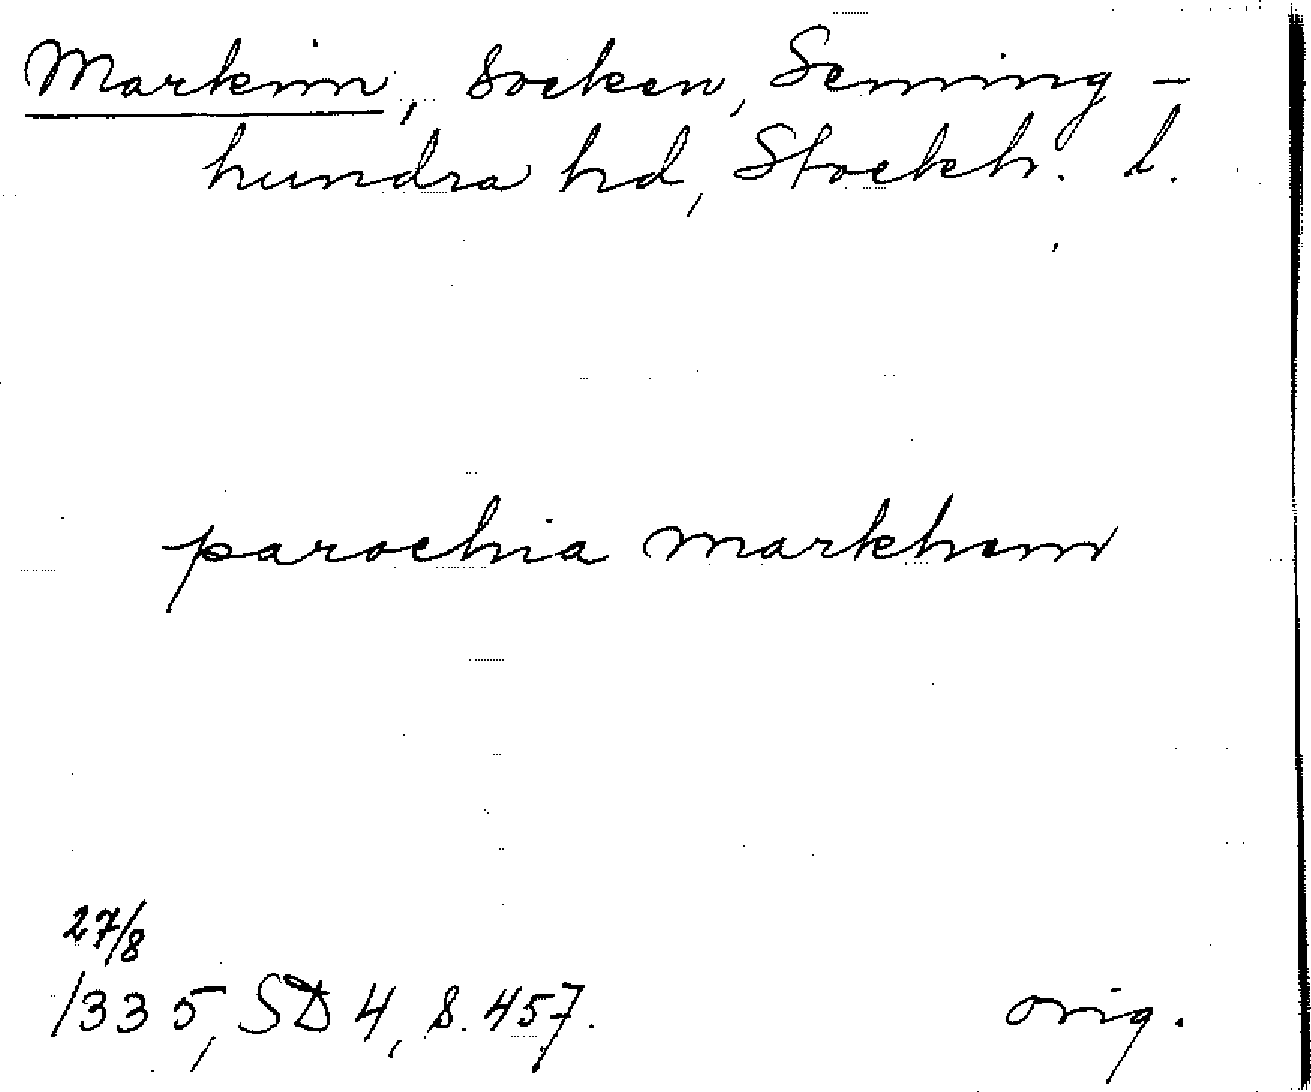 Markim, socken, Seming-
hundra hd, Stockh. l.
parochia markhem
27/8
1335, SD 4, s. 457.
orig.